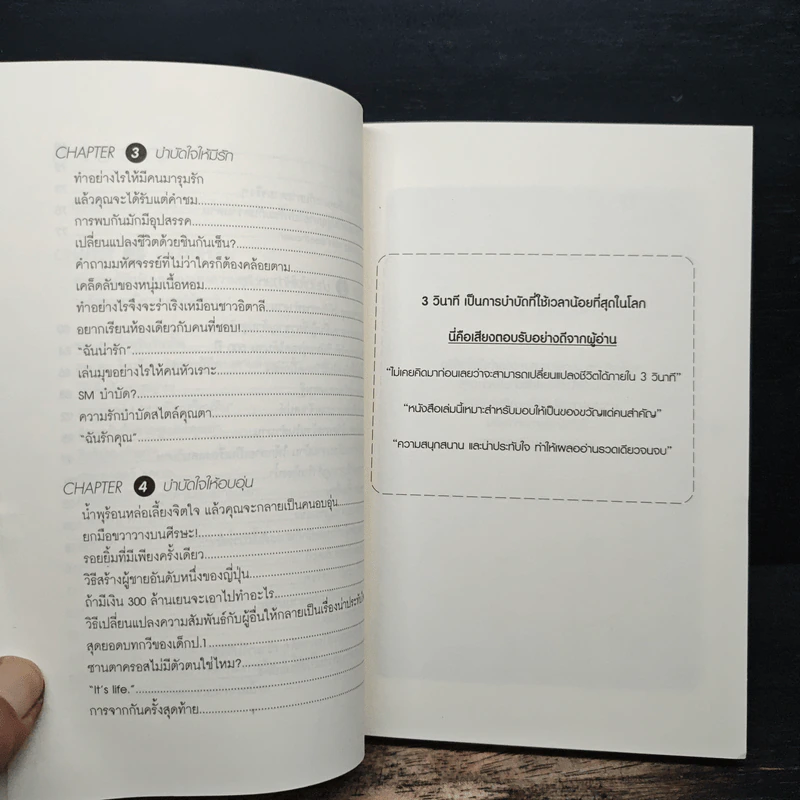 CHAPTER 3 บำบัดใจให้มีรัก
ทำอย่างไรให้มีคนมารุมรัก
แล้วคุณจะได้รับแต่คำชม
การพบกันมักมีอุปสรรค
เปลี่ยนแปลงชีวิตด้วยชินกันเซ็น?
คำถามมหัศจรรย์ที่ไม่ว่าใครก็ต้องคล้อยตาม
เคล็ดลับของหนุ่มเนื้อหอม
ทำอย่างไรจึงจะร่าเริงเหมือนชาวอิตาลี
อยากเรียนห้องเดียวกับคนที่ชอบ!
"ฉันน่ารัก"
เล่นมุขอย่างไรให้คนหัวเราะ
SM บำบัด?
ความรักบำบัดสไตล์คุณตา
"ฉันรักคุณ"
CHAPTER 4 บำบัดใจให้อบอุ่น
น้ำพุร้อนหล่อเลี้ยงจิตใจ แล้วคุณจะกลายเป็นคนอบอุ่น
ยกมือขวาวางบนศีรษะ!
รอยยิ้มที่มีเพียงครั้งเดียว
วิธีสร้างผู้ชายอันดับหนึ่งของญี่ปุ่น
ถ้ามีเงิน 300 ล้านเยนจะเอาไปทำอะไร
วิธีเปลี่ยนแปลงความสัมพันธ์กับผู้อื่นให้กลายเป็นเรื่องน่าประทับใจ
สุดยอดบทกวีของเด็กป.1
ซานตาครอสไม่มีตัวตนใช่ไหม?
"It's life."
การจากกันครั้งสุดท้าย
3 วินาที เป็นการบำบัดที่ใช้เวลาน้อยที่สุดในโลก
นี่คือเสียงตอบรับอย่างดีจากผู้อ่าน
"ไม่เคยคิดมาก่อนเลยว่าจะสามารถเปลี่ยนแปลงชีวิตได้ภายใน 3 วินาที"
"หนังสือเล่มนี้เหมาะสำหรับมอบให้เป็นของขวัญแด่คนสำคัญ"
"ความสนุกสนาน และน่าประทับใจ ทำให้เผลออ่านรวดเดียวจนจบ"